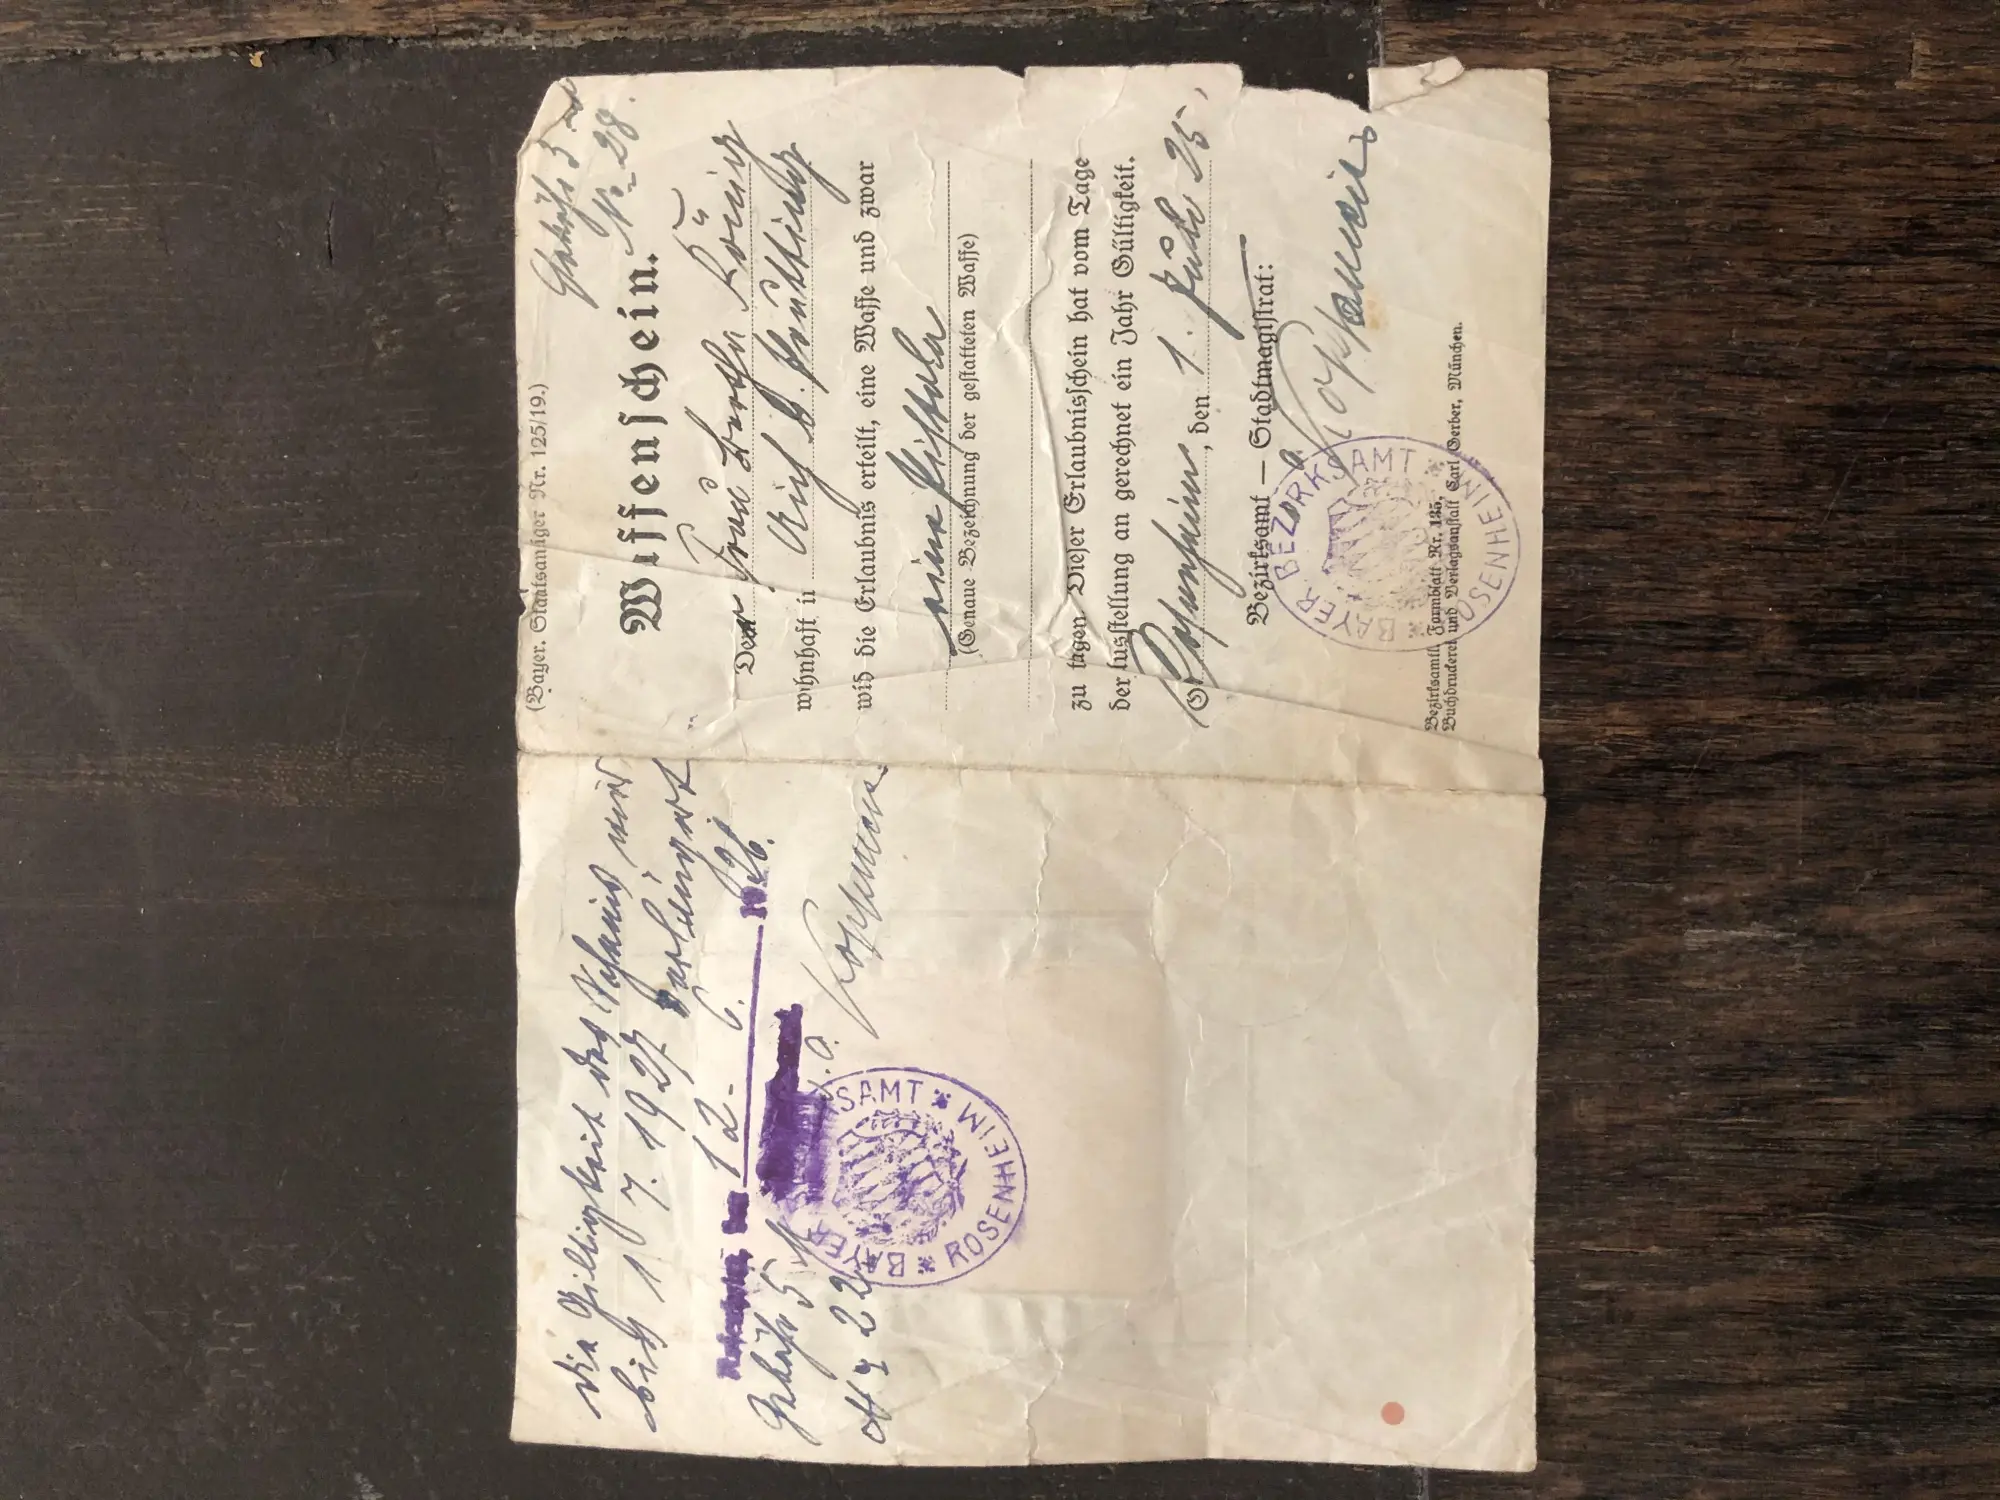 Die Gültigkeit des Scheines wird
bis 1 7. 1927 verlängert
Rosenheim, den 12. 6. 1926.
Gebühr 5 M
No 22
BAYER. BEZIRKSAMT
ROSENHEIM
(Bayer. Staatsanzeiger Nr. 125/19.)
Gebühr 3 M
Nr. 28.
Waffenschein.
Der Frau Bertha König
wohnhaft in
wird die Erlaubnis erteilt, eine Waffe und zwar
eine Pistole
(Genaue Bezeichnung der gestatteten Waffe)
zu tragen. Dieser Erlaubnisschein hat vom Tage
der Ausstellung an gerechnet ein Jahr Gültigkeit.
Rosenheim, den 1. Juli 25.
Bezirksamt — Stadtmagistrat:
BAYER. BEZIRKSAMT
ROSENHEIM
Bezirksamtl. Formblatt Nr. 135,
Buchdruckerei und Verlagsanstalt Carl Gerber, München.